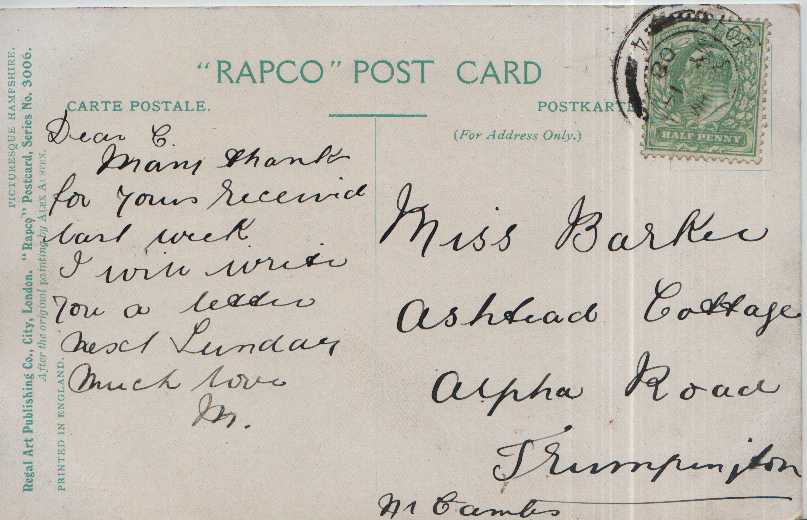 PICTURESQUE HAMPSHIRE.
Regal Art Publishing Co., City, London. "Rapco" Postcard, Series No. 3006.
After the original painting by ALEX
PRINTED IN ENGLAND.
"RAPCO" POST CARD
CARTE POSTALE.
POSTKARTE
(For Address Only.)
HALF PENNY
Dear C
Many thank
for yours received
last week
I will write
you a letter
next Sunday
Much love
M.
Miss Barker
Ashtead Cottage
Alpha Road
Trumpington
Nr Cambs